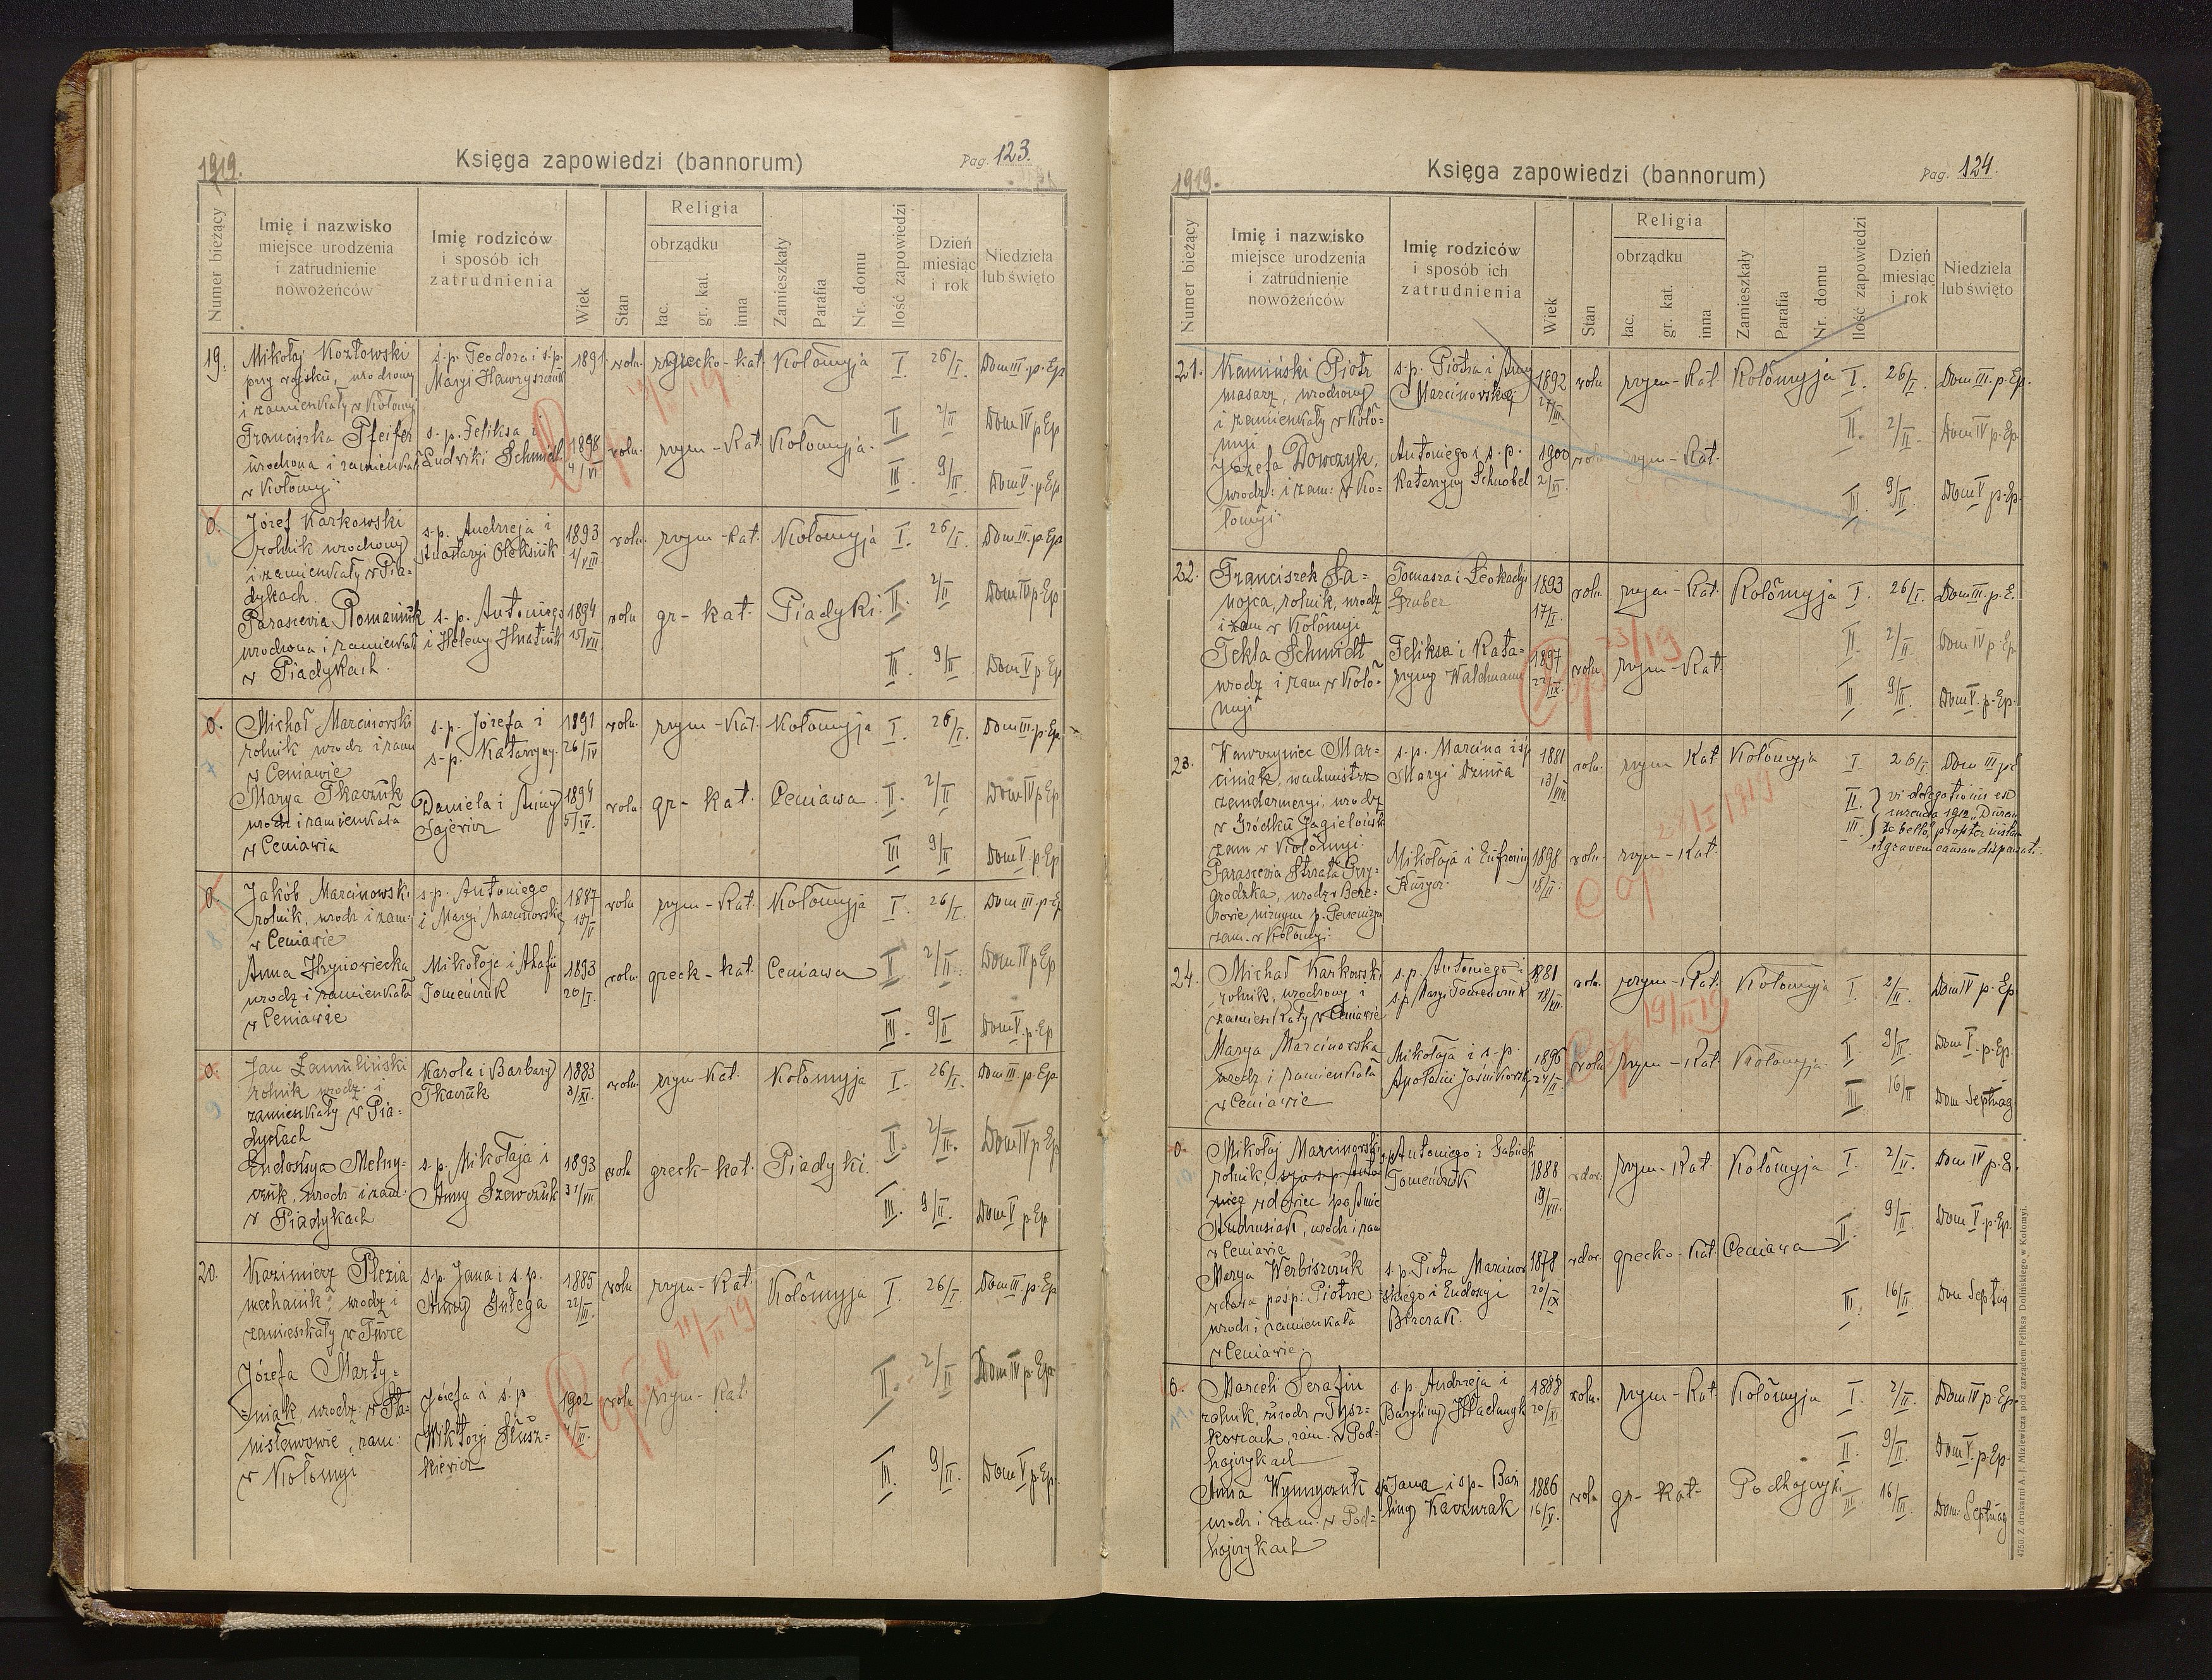 1919.
Księga zapowiedzi (bannorum)
Pag. 123.
Numer bieżący
Imię i nazwisko
miejsce urodzenia
i zatrudnienie
nowożeńców
Imię rodziców
i sposób ich
zatrudnienia
Wiek
Stan
Religia
obrządku
łac.
gr. kat.
inna
Zamieszkały
Parafia
Nr. domu
Ilość zapowiedzi
Dzień
miesiąc
i rok
Niedziela
lub święto
19. Mikołaj Kozłowski ś.p. Teodora i ś.p. 1891 woln. grecko-kat. Kołomyja I. 26/I. Dom III. p. Ep
przy wojsku, urodzony Maryi Hawryszczuk
i zamieszkały w Kołomyi
Franciszka Pfeifer s. p. Feliksa i 1898 woln. rzym-Kat. Kołomyja. II 2/II Dom IV p Ep
urodzona i zamieszkała Ludwiki Schmidt 4/VI
w Kołomyi III. 9/II Dom V. p. Ep
0. Józef Karkowski s.p. Andrzeja i 1893 woln. rzym-kat. Kołomyja I. 26/I. Dom III. p. Ep
6 rolnik urodzony Anastazyi Oleksiuk 1/VIII
i zamieszkały w Pia=
dykach. II. 2/II Dom IV p Ep
Parascevia Romaniuk s. p. Antoniego 1894 woln gr-kat Piadyki
urodzona i zamieszkała i Heleny Hnatiuk 15/VII
w Piadykach III. 9/II Dom V p. Ep
0. Michał Marcinowski s.p. Józefa i 1891 woln. rzym-Kat. Kołomyja I. 26/I. Dom III. p. Ep.
7 rolnik urodz i zam s.p. Katarzyny. 26/IV
w Ceniawie
Marya Tkaczuk Daniela i Anny 1894 woln. gr-kat. Ceniawa. II. 2/II Dom IV p Ep
urodz i zamieszkała Sajewicz 5/IV.
w Ceniawie III 9/II Dom V. p. Ep
0. Jakób Marcinowski s.p. Antoniego 1887 woln rzym-Kat. Kołomyja I. 26/I. Dom III. p. Ep
8 rolnik, urodz i zam: i Maryi Marcinowskiej
w Ceniawie
Anna Hryniowiecka Mikołaja i Ahafii 1893 woln. greck-kat. Ceniawa II 2/II. Dom IV p Ep
urodz i zamieszkała Tomeńczuk 20/I.
w Ceniawie III. 9/II Dom V. p. Ep
0. Jan Karola i Barbary 1883 woln. rzym-Kat. Kołomyja I. 26/I. Dom III. p. Ep.
9 rolnik urodz. i Tkaczuk 3/XI.
zamieszkały w Pia=
dykach II. 2/II. Dom IV p Ep
Eudoksya Melny- s.p. Mikołaja i 1893 woln greck-kat. Piadyki.
czuk, urodz i zam. Anny Szewczuk 31/VII
w Piadykach III. 9/II. Dom V p Ep
20. Kazimierz Plezia s.p. Jana i s. p. 1885 woln rzym-Kat. Kołomyja I. 26/I. Dom III p. Ep
mechanik, urodz i Anny Gulega 22/III.
zamieszkały w Turce 11/II 19
Józefa Marty= Józefa i ś.p 1902 woln rzym-Kat. II. 2/II Dom IV p. Ep.
niak, urodz: w Sta= Wiktoryi Słusz= 4/III.
nisławowie, zam: kiewicz
w Kołomyi III. 9/II. Dom V p. Ep.
1919.
Księga zapowiedzi (bannorum)
Pag. 124.
Numer bieżący
Imię i nazwisko
miejsce urodzenia
i zatrudnienie
nowożeńców
Imię rodziców
i sposób ich
zatrudnienia
Wiek
Stan
Religia
obrządku
łac.
gr. kat.
inna
Zamieszkały
Parafia
Nr. domu
Ilość zapowiedzi
Dzień
miesiąc
i rok
Niedziela
lub święto
21. Kamiński Piotr s.p. Piotra i Anny 1892 woln rzym-Kat. Kołomyja I. 26/I. Dom III. p. Ep.
masarz, urodzony Marcinowskiej 27/III.
i zamieszkały w Koło= II. 2/II. Dom IV p. Ep.
myi
Józefa Dowczyk, Antoniego i s.p. 1900 woln rzym-Kat.
urodz: i zam: w Ko= Katarzyny Schnobel 2/VI. III. 9/II. Dom V p. Ep.
łomyi
22. Franciszek Ła= Tomasza i Leokadyi 1893 woln. rzym-Kat. Kołomyja I. 26/I. Dom III. p. E.
nojca, rolnik, urodz Gruber 17/I.
i zam w Kołomyi II. 2/II. Dom IV p. Ep.
Tekla Schmidt Feliksa i Kata= 1897 woln rzym-Kat.
urodz i zam w Koło= rzyny Waldmann 22/IX. III. 9/II. Dom V. p. Ep.
myi 23/19
23. Wawrzyniec Mar= s.p. Marcina i śp 1881 woln. rzym Kat Kołomyja I. 26/I. Dom III p E
ciniak, wachmistrz Maryi Dziura 13/VIII.
żandarmeryi, urodz. II. } vi delegationis ex
w Gródku Jagielońsk III. } currenda 1912
zam w Kołomyi. propter instan
Mikołaja i Eufrozyny 1898 woln. rzym-Kat. et gravem causam dispensat.
grodzka, urodz w Bere= 18/II. 28/I 1919
zowie niżnym p. Peczeniżyn
zam. w Kołomyi.
24. Michał Karkowski s.p. Antoniego i 1881 woln. rzym-Kat. Kołomyja I. 2/II. Dom IV p. Ep
rolnik, urodzony i s.p. Maryi Tomeńczuk 18/XII.
zamieszkały w Ceniawie 19/II 19
Marya Marcinowska Mikołaja i s.p. 1896 woln rzym-Kat Kołomyja. II. 9/II. Dom V. p. Ep.
urodz i zamieszkała 24/II.
w Ceniawie III 16/II Dom Septuag
0. Mikołaj Marcinowski s.p. Antoniego i 1888 wdow. rzym-Kat. Kołomyja I. 2/II. Dom IV p. E.
10 rolnik, Tomeńczuk 19/VII.
wdowiec po Annie
Andrusiak, urodz i zam II. 9/II. Dom V. p. Ep.
w Ceniawie
Marya Werbiszczuk s.p. Piotra Marcinow 1878 wdow. grecko-Kat. Ceniawa
wdowa po sp: Piotrze skiego i Eudoksyi 20/IX
urodz i zamieszkała III. 16/II. Dom Septug
w Ceniawie.
0. Marceli Serafin s.p. Andrzeja i 1888 woln. rzym-Kat Kołomyja I. 2/II. Dom IV p. Ep.
11. rolnik, urodz w Tysz= 20/XI
kowcach, zam. w Pod= II. 9/II. Dom V. p. Ep.
hajczykach
Anna Wynnyczuk sp. Jana i sp. 1886 woln gr-kat- Podhajczyki III. 16/II. Dom. Septuag
urodz i zam. w Pod= 16/V.
hajczykach
4750. Z drukarni A. J. Miziewicza pod zarządem Feliksa Dolińskiego w Kołomyi.